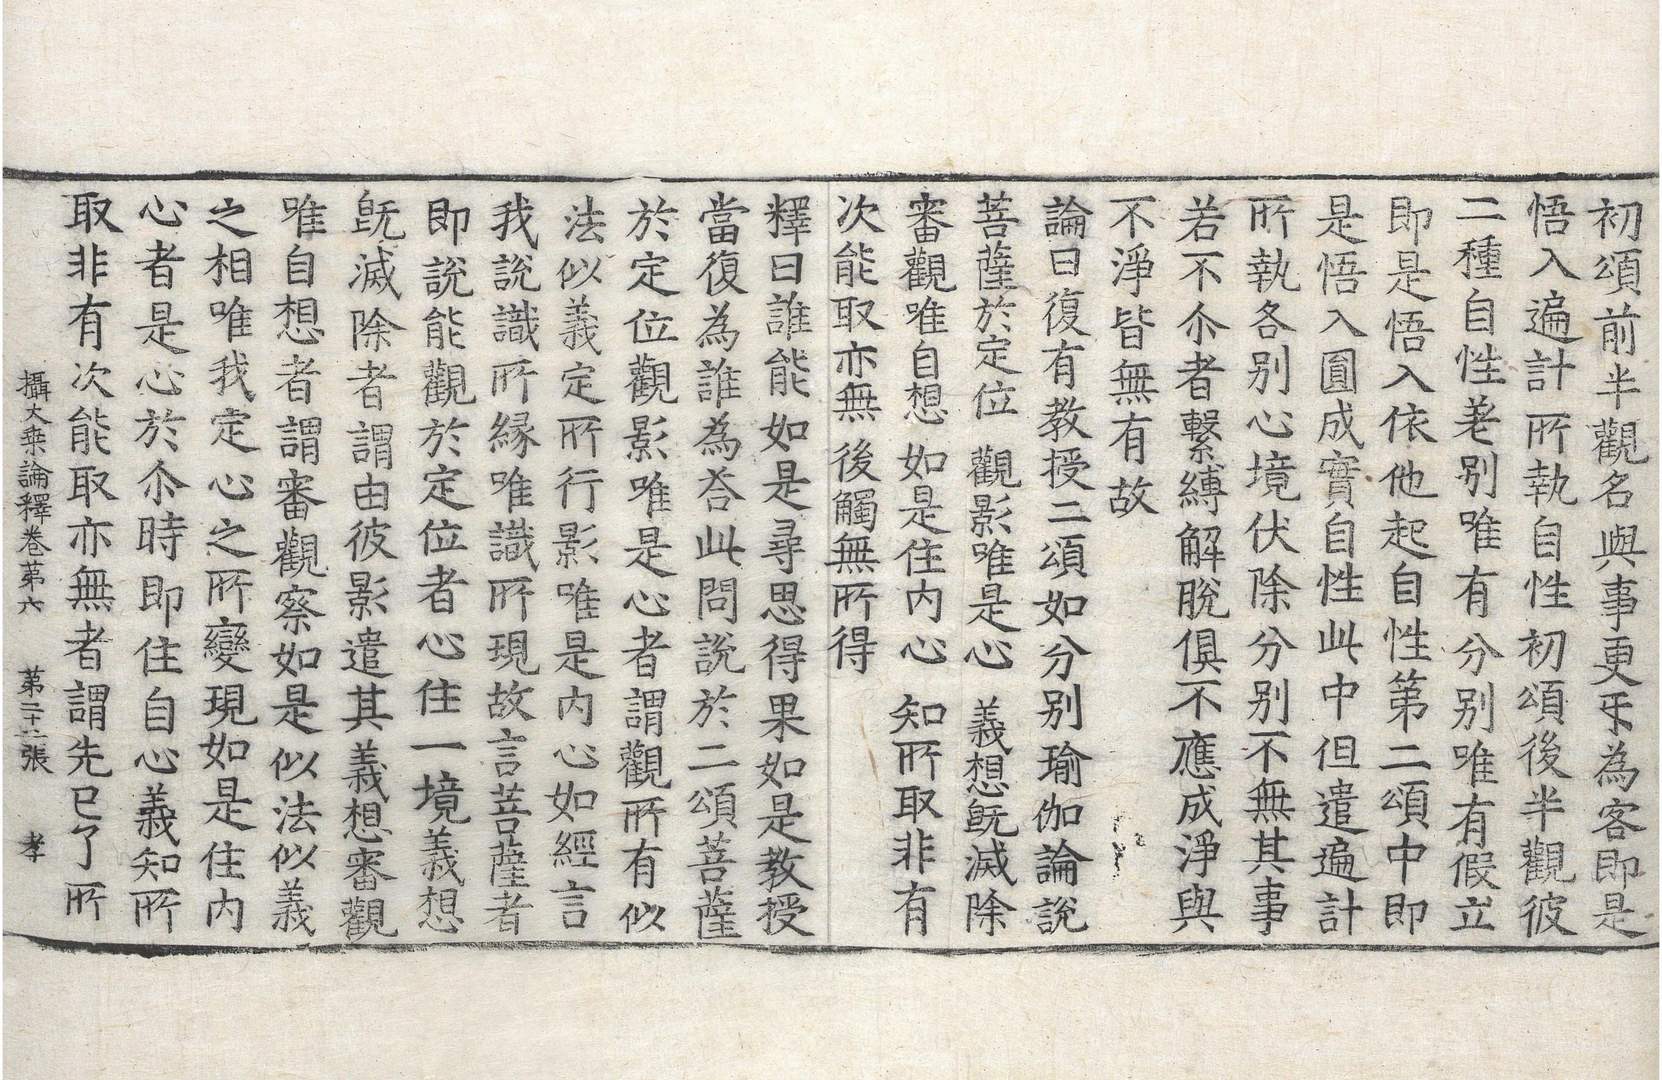 初頌前半觀名與事更㸦為客即是
悟入遍計所執自性初頌後半觀彼
二種自性差别唯有分别唯有假立
即是悟入依他起自性第二頌中即
是悟入圓成實自性此中但遣遍計
所執各别心境伏除分别不無其事
若不尒者繫縛解脫俱不應成淨與
不淨皆無有故
論曰復有教授二頌如分别瑜伽論說
菩薩於定位 觀影唯是心 義想既滅除
審觀唯自想 如是住内心 知所取非有
次能取亦無 後觸無所得
釋曰誰能如是尋思得果如是教授
當復為誰為荅此問說於二頌菩薩
於定位觀影唯是心者謂觀所有似
法似義定所行影唯是内心如經言
我說識所緣唯識所現故言菩薩者
即說能觀於定位者心住一境義想
既滅除者謂由彼影遣其義想審觀
唯自想者謂審觀察如是似法似義
之相唯我定心之所變現如是住内
心者是心於尒時即住自心義知所
取非有次能取亦無者謂先已了所
攝大乘論釋卷第六 第二十二張 孝